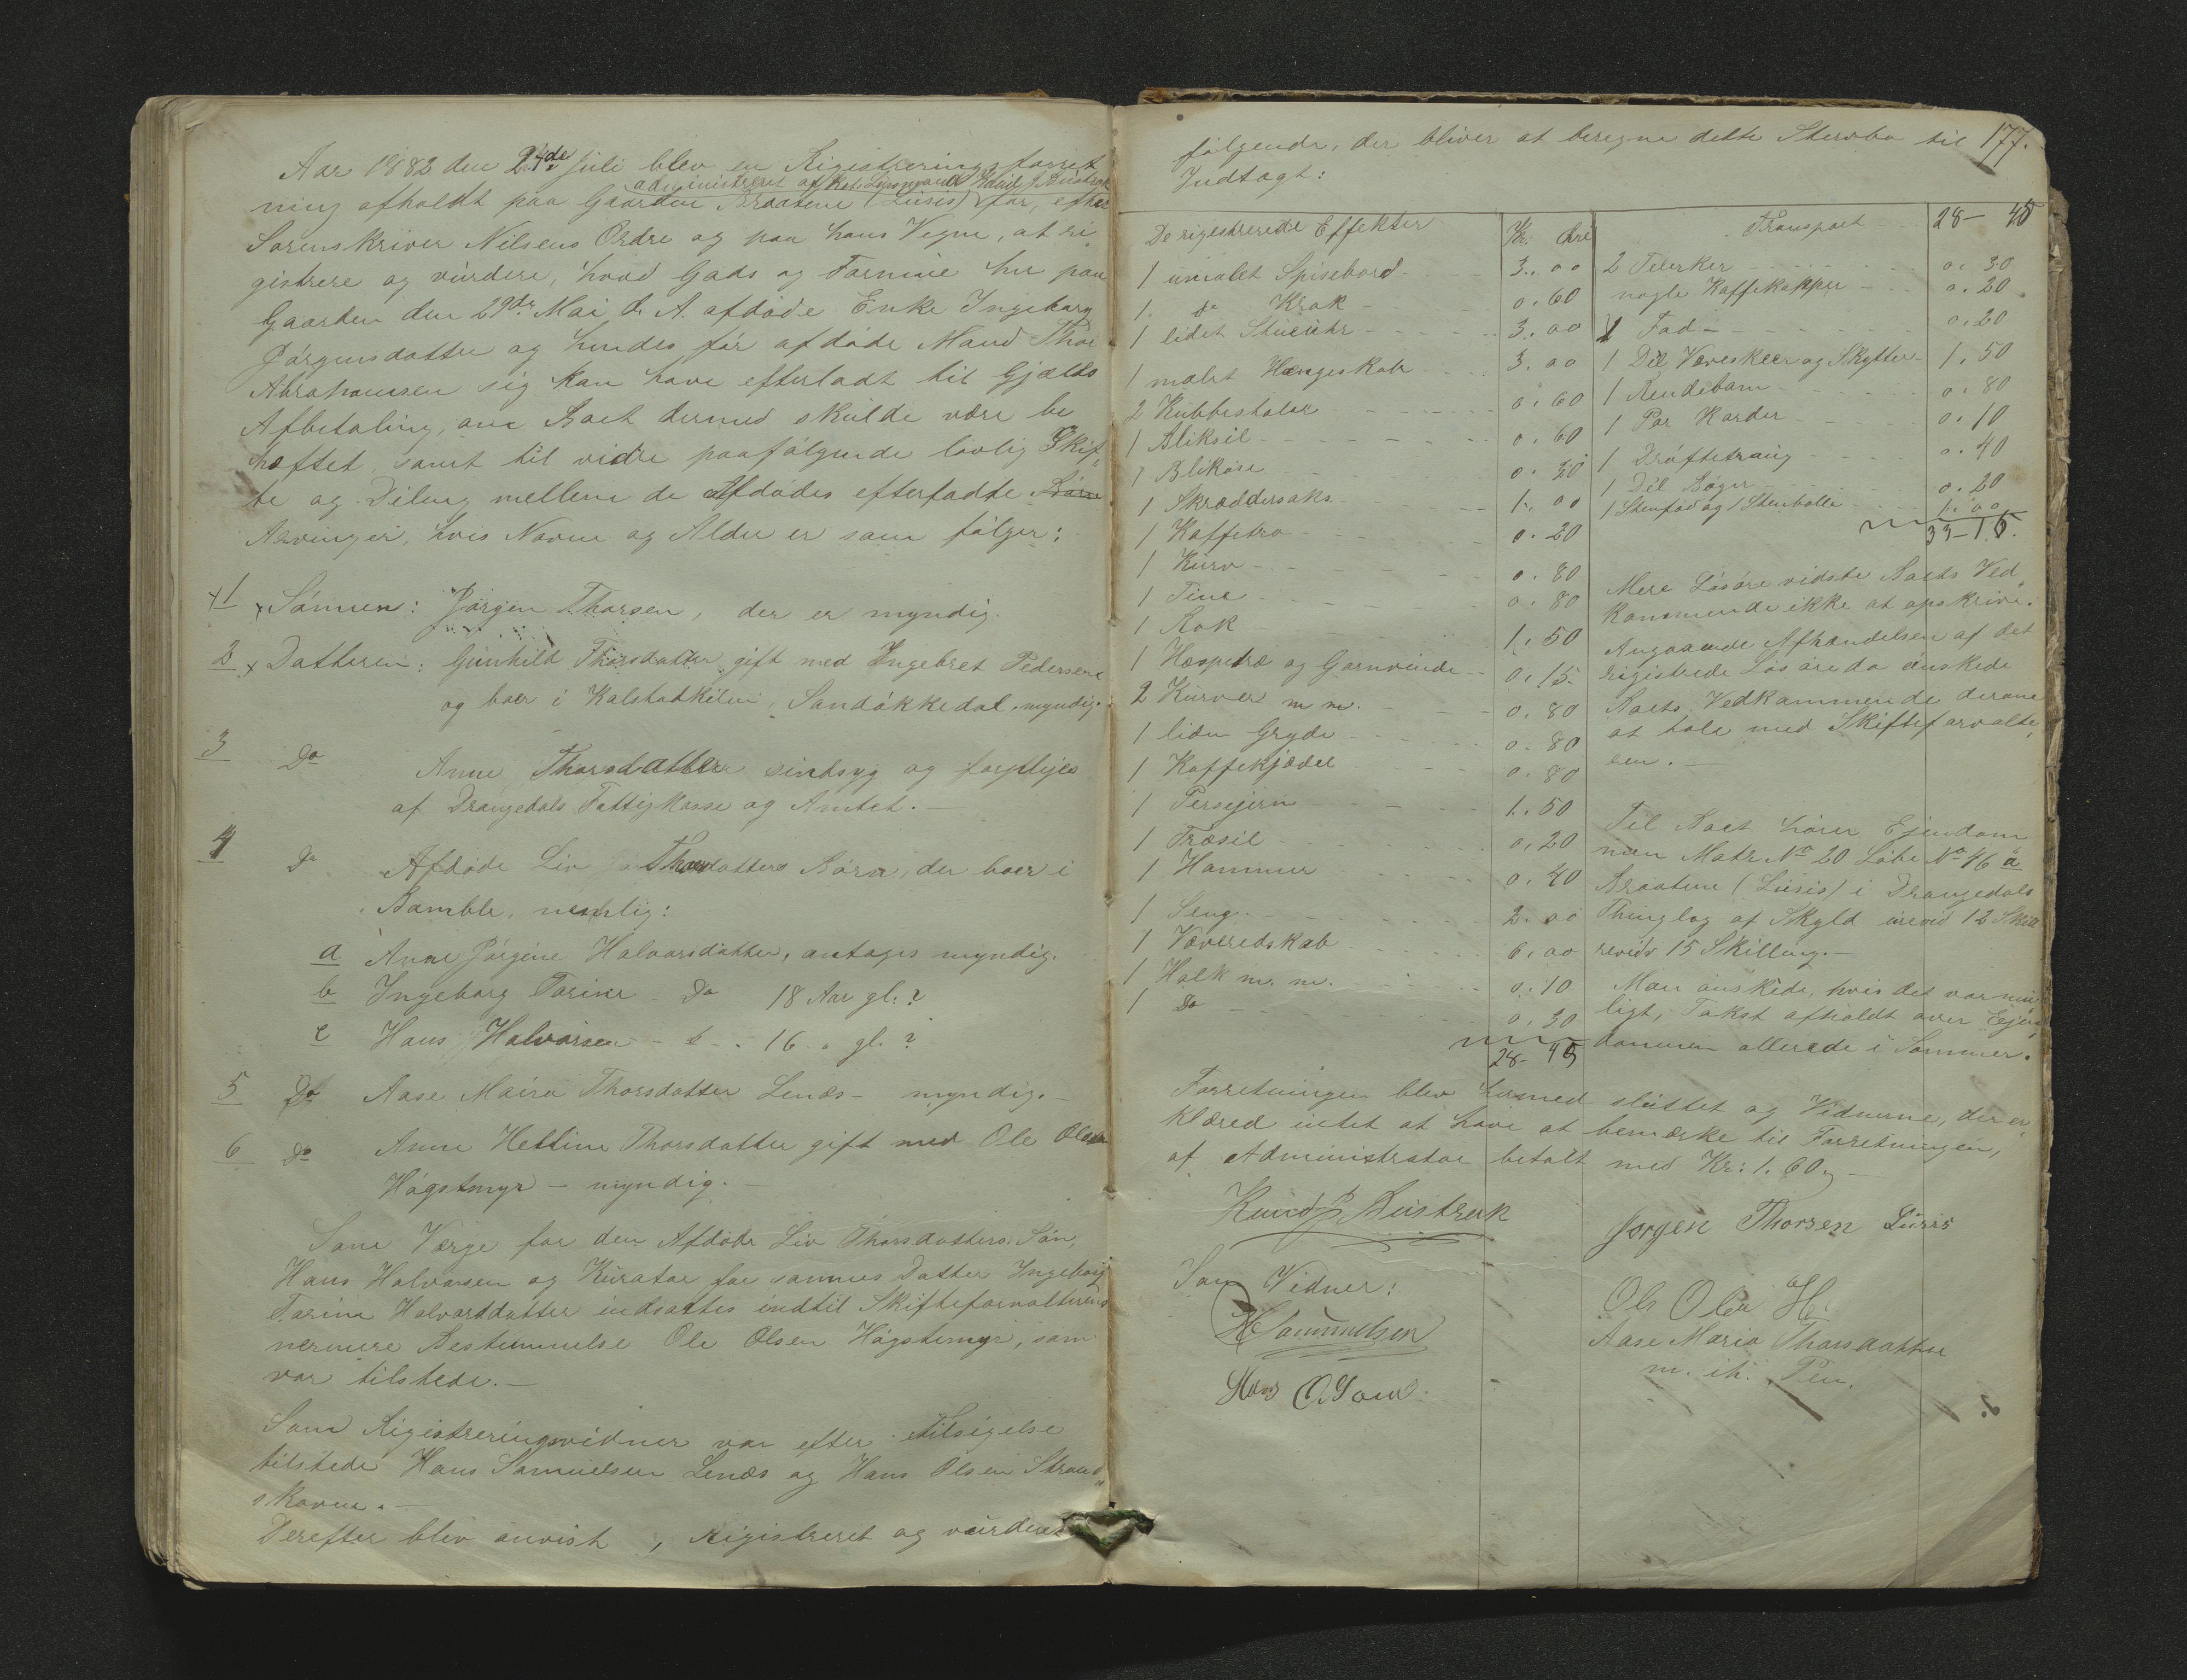 Aar 1882 den 24de Juli blev en Rigistreringsforret
administreret af Kst. Lensmand Knud J. Bustrak
ning afholdt paa Gaarden Braatene (Lusis) for, efter
Sorenskriver Nilsens Ordre og paa hans Vegne, at re
gistrere og vürdere, hvad Gods og Formüe her paa
Gaarden den 29de Mai d. A. afdöde Enke Ingeborg
Jörgensdatter og hendes för afdöde Mand Thor
Abrahamsen sig kan have efterladt til Gjælds
Afbetaling, om Boet dermed skülde være be
hæftet, samt til vidre paafölgende lovlig Skif„
te og Deling mellem de Afdödes efterladte Börn
Arvinger, hvis Navne og Alder er som fölger:
1 Sönnen: Jörgen Thorsen, der er myndig.
2 Datteren: Günhild Thorsdatter gift med Ingebret Pedersen
og boer i Kalstadkilen, Sandökkedal, myndig.
3 Do Anne Thorsdatter sindsyg og forplejes
af Drangedals Fattigkasse og Amtet.—
4 Do Afdöde Liv Thorsdatters Börn, der boer i
Bamble, nemlig:
a Anne Jörgine Halvorsdatter, antages myndig.
b Ingeborg Torine Do 18 Aar gl.?
c Hans Halvorsen - 16 „ gl.?
5 Do Aase Maira Thorsdatter Lenæs - myndig.—
6 Do Anne Helline Thorsdatter gift med Ole Olsen
Högstmyr — myndig.—
Som Værge for den Afdöde Liv Thorsdatters Sön,
Hans Halvorsen og Kürator for sammes Datter Ingeborg
Torine Halvorsdatter indsattes indtil Skifteforvalterens
nermere Bestemmelse Ole Olsen Högstemyr, som
var tilstede.—
Som Rigistreringsvidner var efter Tilsigelse
tilstede Hans Samuelsen Lenæs og Hans Olsen Strand„
skoven.—
Derefter blev anvist, Rigistreret og vürderet
177.
fölgende, der bliver at beregne dette Sterbo til
Indtægt:
De rigistrerede Effekter Kr. Öre
1 ümalet Spisebord 3. 00
1 do Krak 0. 60
1 lidet Stueühr 3. 00
1 malet Hængeskab 3. 00
2 Kübbestoler 0. 60
1 Bliksil 0. 60
1 Bliköse 0. 20
1 Skræddersaks 1. 00
1 Kaffebro 0. 20
1 Kürv 0. 80
1 Tine 0. 80
1 Rok 1. 50
1 Hespetræ og Garnvinde 0. 15
2 Kürver m m. 0. 80
1 liden Gryde 0. 80
1 Kaffekjedel 0. 80
1 Persejern 1. 50
1 Træsil 0. 20
1 Hammer 0. 40
1 Seng 2. 00
1 Væveredskab 6. 00
1 Holk m. m. 0. 10
1 Do 0. 30
28- 45
Transport 28- 45
2 Telerker 0. 30
nogle Kaffekopper 0. 20
1 Fad 0. 20
1 Del Væveskeer og Skytter 1. 50
1 Rendebom 0. 80
1 Par Karder 0. 10
1 Dröftetraug 0. 40
1 Del Böger 0. 20
1 Stenfad og 1 Stenbolle 1. 00
33-15.
Mere Lösöre vidste Boets Ved„
kommende ikke at opskrive.
Angaaende Afhændelsen af det
rigistrede Lösöre da önskede
Boets Vedkommende derom
at tale med Skifteforvalte„
ren.—
Til Boet hörer Ejendom
men Matr No 20 Löbe No 46 a
Braatene (Lüsis) i Drangedals
Thinglag af Skyld ürevid 12 Skill
revidr 15 Skilling.—
Man önskede, hvis det var mu
ligt, Takst afholdt over Ejen„
dommen allerede i Sommer.
Forretningen blev hermed slüttet og Vidnerne, der er„
klæred intet at have at bemærke til Forretningen,
af Administrator betalt med Kr: 1. 60,—
Knud J. Bustrak
Jorgen Thorsen Lüsis
Som Vidner:
H Samuelsen
Hans O.
Ole Olsen H.
Aase Maria Thorsdatter
m. ih. Pen.